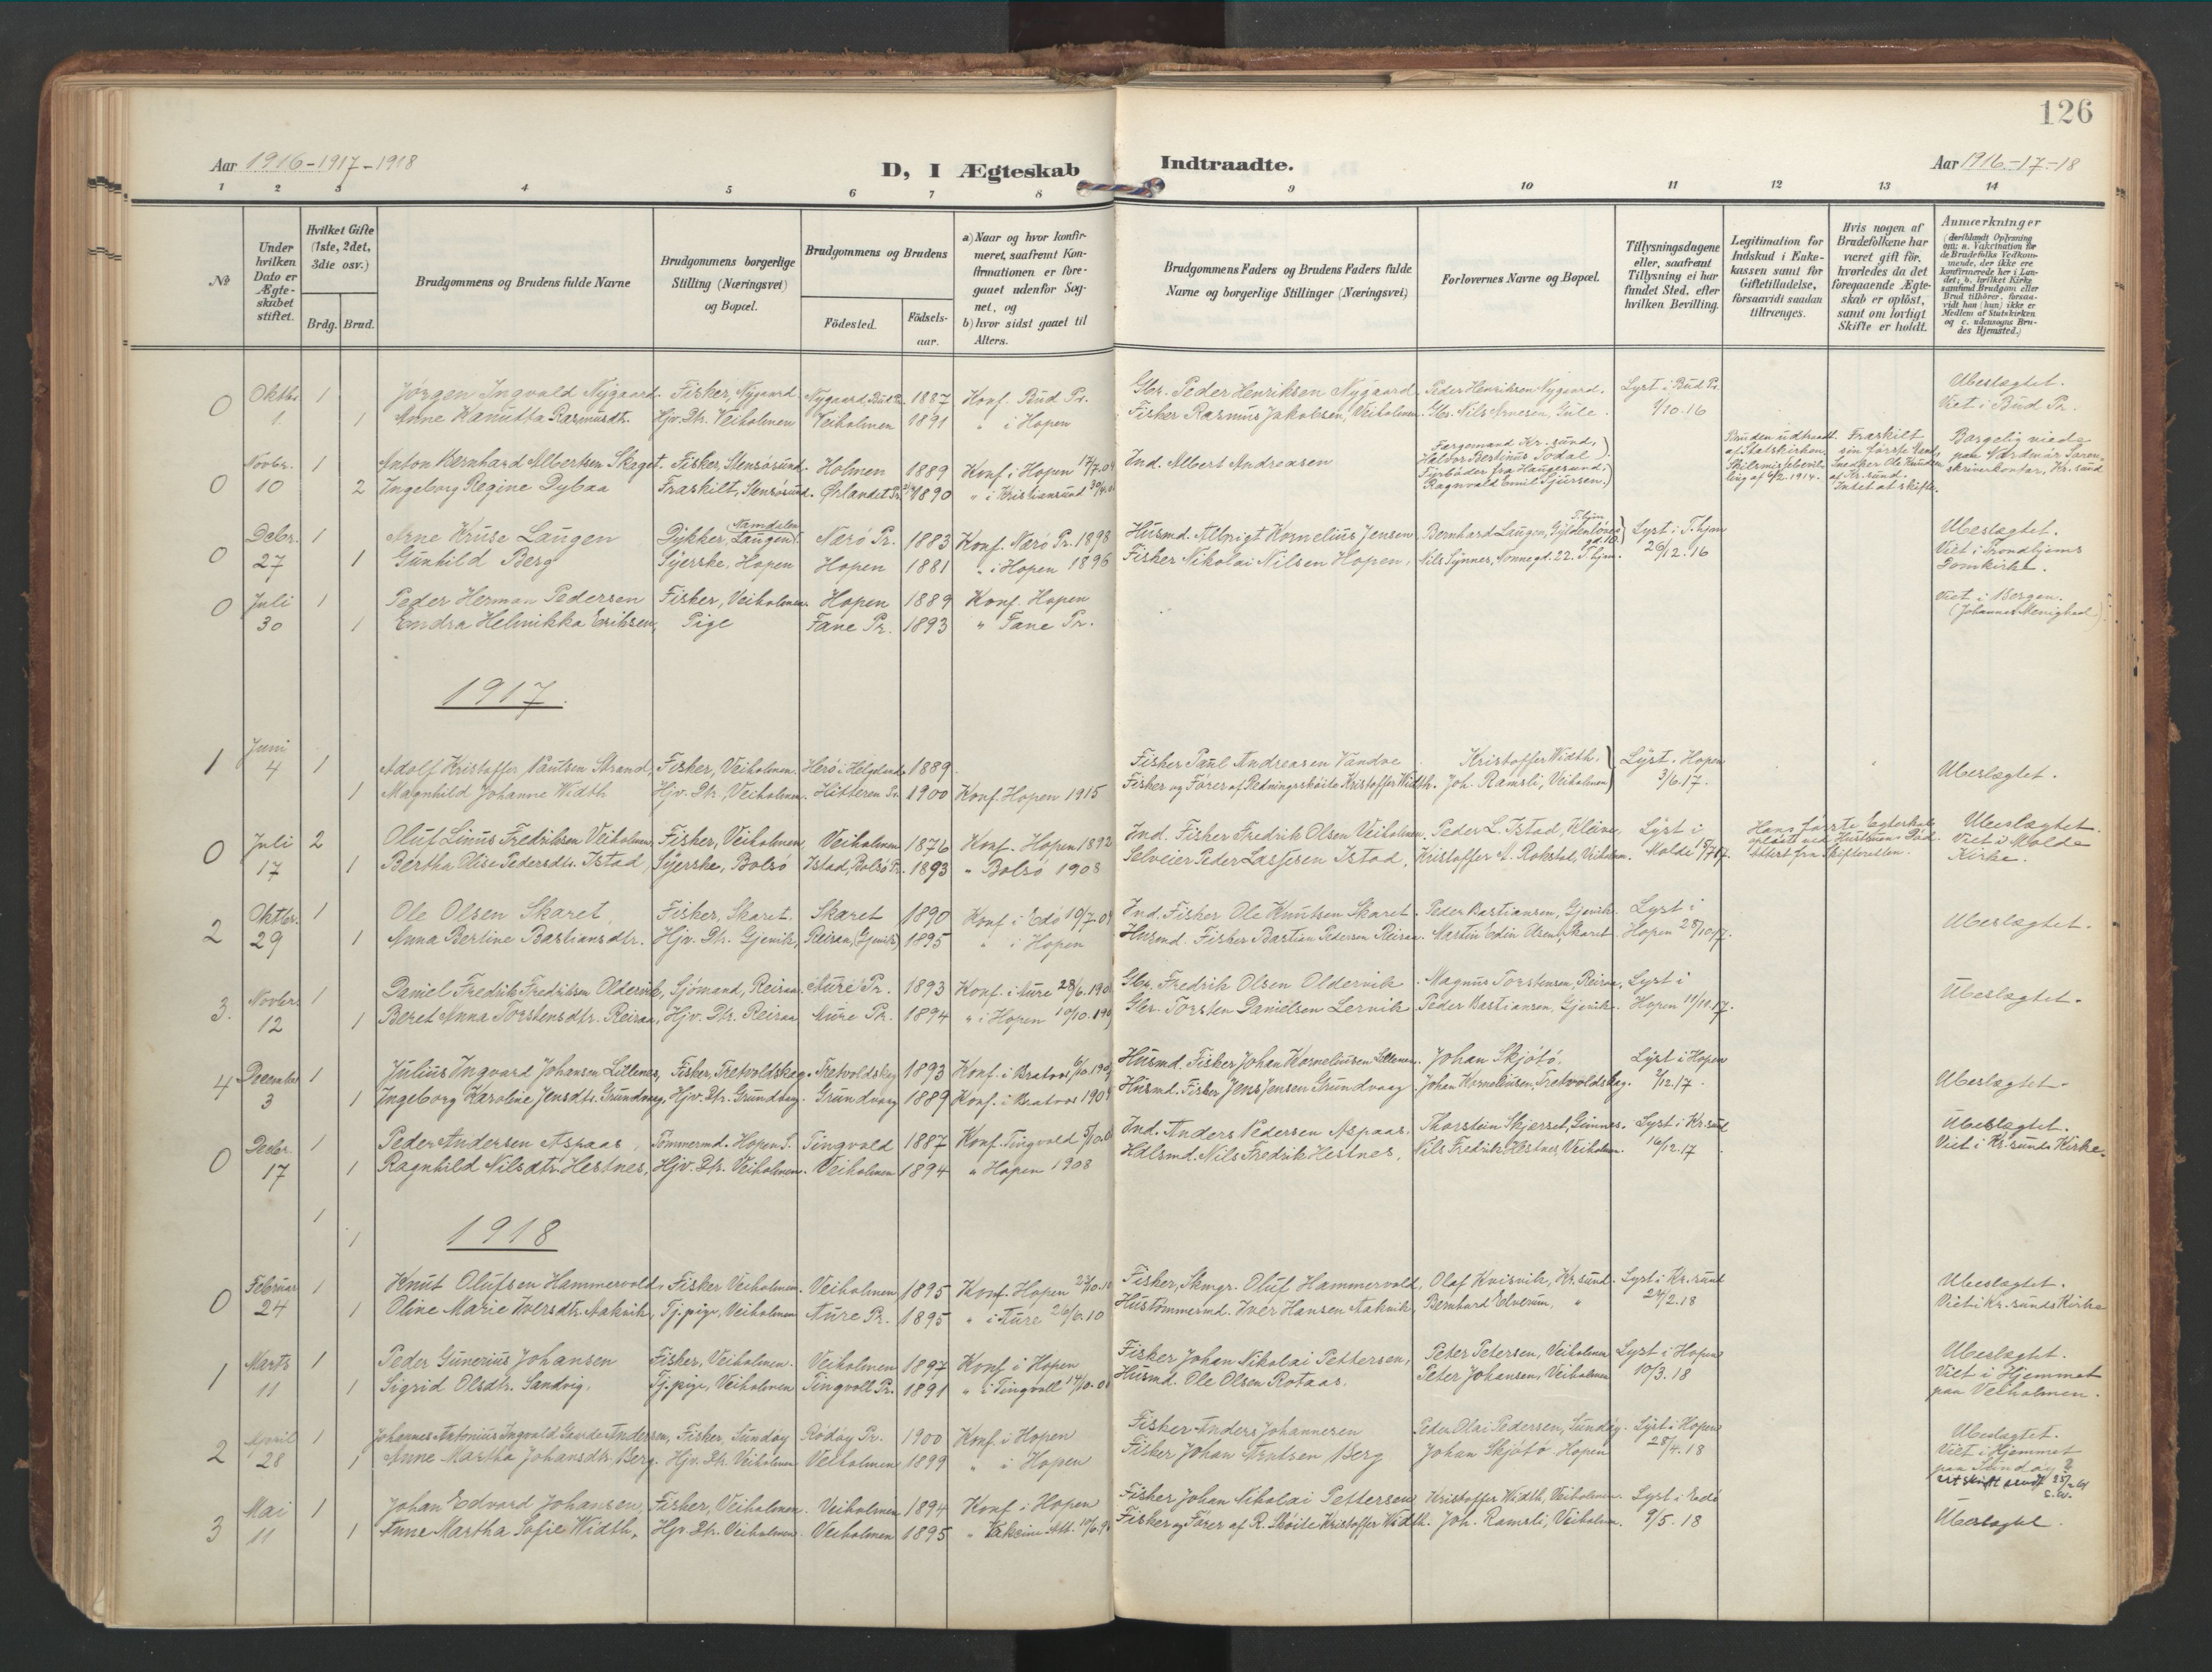 126
Aar 1916-1917-1918
D, I Ægteskab Indtraadte.
Aar 1916.-17.-18
1 2 3 4 5 6 7 8 9 10 11 12 13 14
No
Under hvilken Dato er Ægteskabet stiftet.
Hvilket Gifte (1ste, 2det, 3die osv.)
Brdg. Brud.
Brudgommens og Brudens fulde Navne
Brudgommens borgerlige Stilling (Næringsvei) og Bopæl.
Brudgommens og Brudens
Födested. Födselsaar.
a) Naar og hvor konfirmeret, saafremt Konfirmationen er foregaaet udenfor Sognet, og
b) hvor sidst gaaet til Alters.
Brudgommens Faders og Brudens Faders fulde Navne og borgerlige Stillinger (Næringsvei)
Forlovernes Navne og Bopæl.
Tillysningsdagene eller, saafremt Tillysning ei har fundet Sted, efter hvilken Bevilling.
Legitimation for Indskud i Enkekassen samt for Giftetilladelse, forsaavidt saadan tiltrænges.
Hvis nogen af Brudefolkene har været gift för, hvorledes da det foregaaende Ægteskab er oplöst, samt om lovligt Skifte er holdt.
Anmærkninger (deriblandt Oplysning om: a. Vakcination for de Brudefolks Vedkommende, der ikke ere konfirmerede her i Landet; b. hvilket Kirkesamfund Brudgom eller Brud tilhörer, forsaavidt han (hun) ikke er Medlem af Statskirken og c. udensogns Brudes Hjemsted.)
0 Oktbr. 1 Jørgen Ingvald Nygaard. Fisker, Nygaard. Nygaard, Bud Pr. 1887 Konf. Bud Pr. Gbr. Peder Henriksen Nygaard. Peder Henriksen Nygaard. Lyst i Bud Pr. Ubeslægtet.
1. 1 Anne Kanutta Rasmusdtr. Hjv. Dtr. Veiholmen Veiholmen 1891 " i Hopen Fisker Rasmus Jakobsen, Veiholmen. Gbr. Nils Arnesen, Gule. 1/10.16 Viet i Bud Pr.
0 Novbr. 1 Anton Bernhard Albertsen Skaget. Fisker, Stensøsund. Holmen 1889 Konf. i Hopen 17/7.04 Ind. Albert Andreasen
10 2 Ingeborg Regine Dybaa Fraskilt, Stensøsund. Ørlandet Pr. 1890 " i Kristiansund 30/4.05
Færgemand Kr.sund, Halvor Bertinus Todal
Fyrbøder fra Haugesund, Ragnvald Emil Sjursen.
Bruden udtraadt af Statskirken. Skilsmissebevilling af 6/2.1914.
Fraskilt sin første Mand, Snedker Ole Knudsen af Kr.sund. Intet at skifte.
Borgelig viede paa Nordmør Sorenskriverkontor, Kr.sund
0 Decbr. 1 Arne Kruse Laugen Dykker, Laugen (Namdalen). Narö Pr. 1883 Konf. Narö Pr. 1898 Husmd. Albrigt Kornelius Jensen Bernhard Laugen, Gyldenløvesgd. 10. T.hjem Lyst i T.hjem Ubeslægtet.
27 1 Gunhild Berg Syerske, Hopen Hopen 1881 " i Hopen 1896 Fisker Nikolai Nilsen Hopen. Nils Synnes, Nonnegd. 22. T.hjem. 26/12.16 Viet i Trondhjems Domkirke.
0 Juli 1 Peder Herman Pedersen Fisker, Veiholmen. Hopen 1889 Konf. Hopen Viet i Bergen.
30 1 Endra Helmikka Eriksen, Pige Fane Pr. 1893 " Fane Pr. (Johannes Menighed).
1917.
1 Juni 4 1 Adolf Kristoffer Paulsen Strand, Fisker, Veiholmen. Herö i Helgeland. 1889. Fisker Paul Andreasen Vandve Kristoffer Width. Lyst. Hopen
1 Magnhild Johanne Width Hjv. Dtr, Veiholmen. Hitteren Pr. 1900 Konf. Hopen 1915 Fisker og Fører af Redningsskøite Kristoffer Width. Joh. Ramsli, Veiholmen 3/6.17. Ubeslægtet.
0 Juli 2 Oluf Linus Fredriksen Veiholmen, Fisker, Veiholmen. Veiholmen 1876 Konf. Hopen 1892 Ind. Fisker Fredrik Olsen Veiholmen. Peder L. Istad, Kleive. Lyst i Hans første Egteskab opløst ved Hustruens Død. Attest fra Skifteretten. Ubeslægtet.
17 1 Bertha Olise Pedersdtr. Istad, Syerske, Bolsö Istad, Bolsö Pr. 1893 " Bolsö 1908 Selveier Peder Lassesen Istad, Kristoffer A. Rokstad, Veiholmen. Molde 15/7 17. Viet i Molde Kirke.
2 Oktbr. 1 Ole Olsen Skaret, Fisker, Skaret. Skaret 1890 Konf i Edö 10/7.04 Ind. Fisker Ole Knutsen Skaret. Peder Bastiansen, Gjevik. Lyst i
29 1 Anna Bertine Bastiansdtr. Hjv. Dtr. Gjevik, Reiran, (Gjevik) 1895 " i Hopen Husmd. Fisker Bastian Pedersen Reiran. Martin Edin Olsen, Skaret. Hopen 28/10.17. Ubeslægtet.
3. Novbr. 1 Daniel Fredrik Fredriksen Oldervik, Sjömand, Reiran. Aure Pr. 1893 Konf. i Aure 28/6.190 Gbr. Fredrik Olsen Oldervik Magnus Torstensen, Reiran, Lyst i
12 1 Beret Anna Torstensdtr. Reiran, Hjv. Dtr. Reiran Aure Pr. 1894 " i Hopen 10/10.190 Gbr. Torsten Danielsen Lervik. Peder Bastiansen, Gjevik. Hopen 11/11.17. Ubeslægtet.
4 December 1 Julius Ingvard Johansen Littenes, Fisker, Tretvoldskag. Tretvoldskag 1893 Konf. i Bratvær 6/10.190 Husmd. Fisker Johan Korneliusen Littenes. Johan Skjötö. Lyst i Hopen
3 1 Ingeborg Karoline Jensdtr. Grundvaag, Hjv. Dtr. Grundvaag. Grundvaag 1889 Konf. i Bratvær 1904 Husmd. Fisker Jens Jensen Grundvaag. Johan Korneliusen, Tretvoldskag. 2/12.17. Ubeslægtet.
0 Decbr. 1 Peder Andersen Aspaas, Tömmermd. Hopen S. Tingvold 1887 Konf. Tingvold 5/10.01 Ind. Anders Pedersen Aspaas. Thorstein Skjerset, Gimnes. Lyst i Kr.sund Ubeslægtet.
17 1 Ragnhild Nilsdtr. Hestnes, Hjv. Dtr. Veiholmen. Veiholmen 1894 " Hopen 1908 Hdlsmd. Nils Fredrik Hestnes, Nils Fredrik Hestnes, Veiholmen. 16/12.17 Viet i Kr.sunds Kirke.
1
1
1918
0 Februar 1 Knut Olufsen Hammervold, Fisker Veiholmen. Veiholmen 1895 Konf. Hopen 23/10.10 Fisker, Skmgr. Oluf Hammervold, Olaf Kvisvik, Kr.sund. Lyst i Kr.sund Ubeslægtet.
24 1 Oline Marie Iversdtr. Aakvik, Tj.pige, Veiholmen Aure Pr. 1895 " i Aure 26/6.10 Hustömmermd. Iver Hansen Aakvik, Bernhard Elverum, " 24/2.18 Viet i Kr.sunds Kirke
1 Marts 1 Peder Gunerius Johansen Fisker, Veiholmen. Veiholmen 1897 Konf i Hopen Fisker Johan Nikolai Pettersen, Peter Petersen, Veiholmen Lyst i Hopen Ubeslægtet.
11 1 Sigrid Olsdtr. Sandvig, Tj.pige, Veiholmen Tingvoll Pr. 1891 " i Tingvoll 14/10.0 Husmd. Ole Olsen Rotaas. Peter Johansen, Veiholmen 10/3.18 Viet i Hjemmet paa Veiholmen.
2 April 1 Johannes Antonius Ingvald Andersen, Fisker, Sundöy Rödöy Pr. 1900 Konf. i Hopen Fisker Anders Johannesen Peder Olai Pedersen, Sundöy. Lyst i Hopen Ubeslægtet.
28 1 Anne Martha Johansdtr. Berg. Hjv. Dtr. Veiholmen Veiholmen 1899 " i Hopen Fisker Johan Arntsen Berg Johan Skjötö Hopen 28/4.18 Viet i Hjemmet paa Sundöy
3 Mai 1 Johan Edvard Johansen, Fisker, Veiholmen. Veiholmen 1894 Konf. i Hopen Fisker Johan Nikolai Pettersen Kristoffer Width, Veiholmen. Lyst i Edö
11 1 Anne Martha Sofie Width, Hjv. Dtr. Veiholmen. Veiholmen 1895 " Vaksine Att. Fisker og Fører af R. Sköite Kristoffer Width. Joh. Ramsli, Veiholm. 9/5.18 Ubeslægtet.